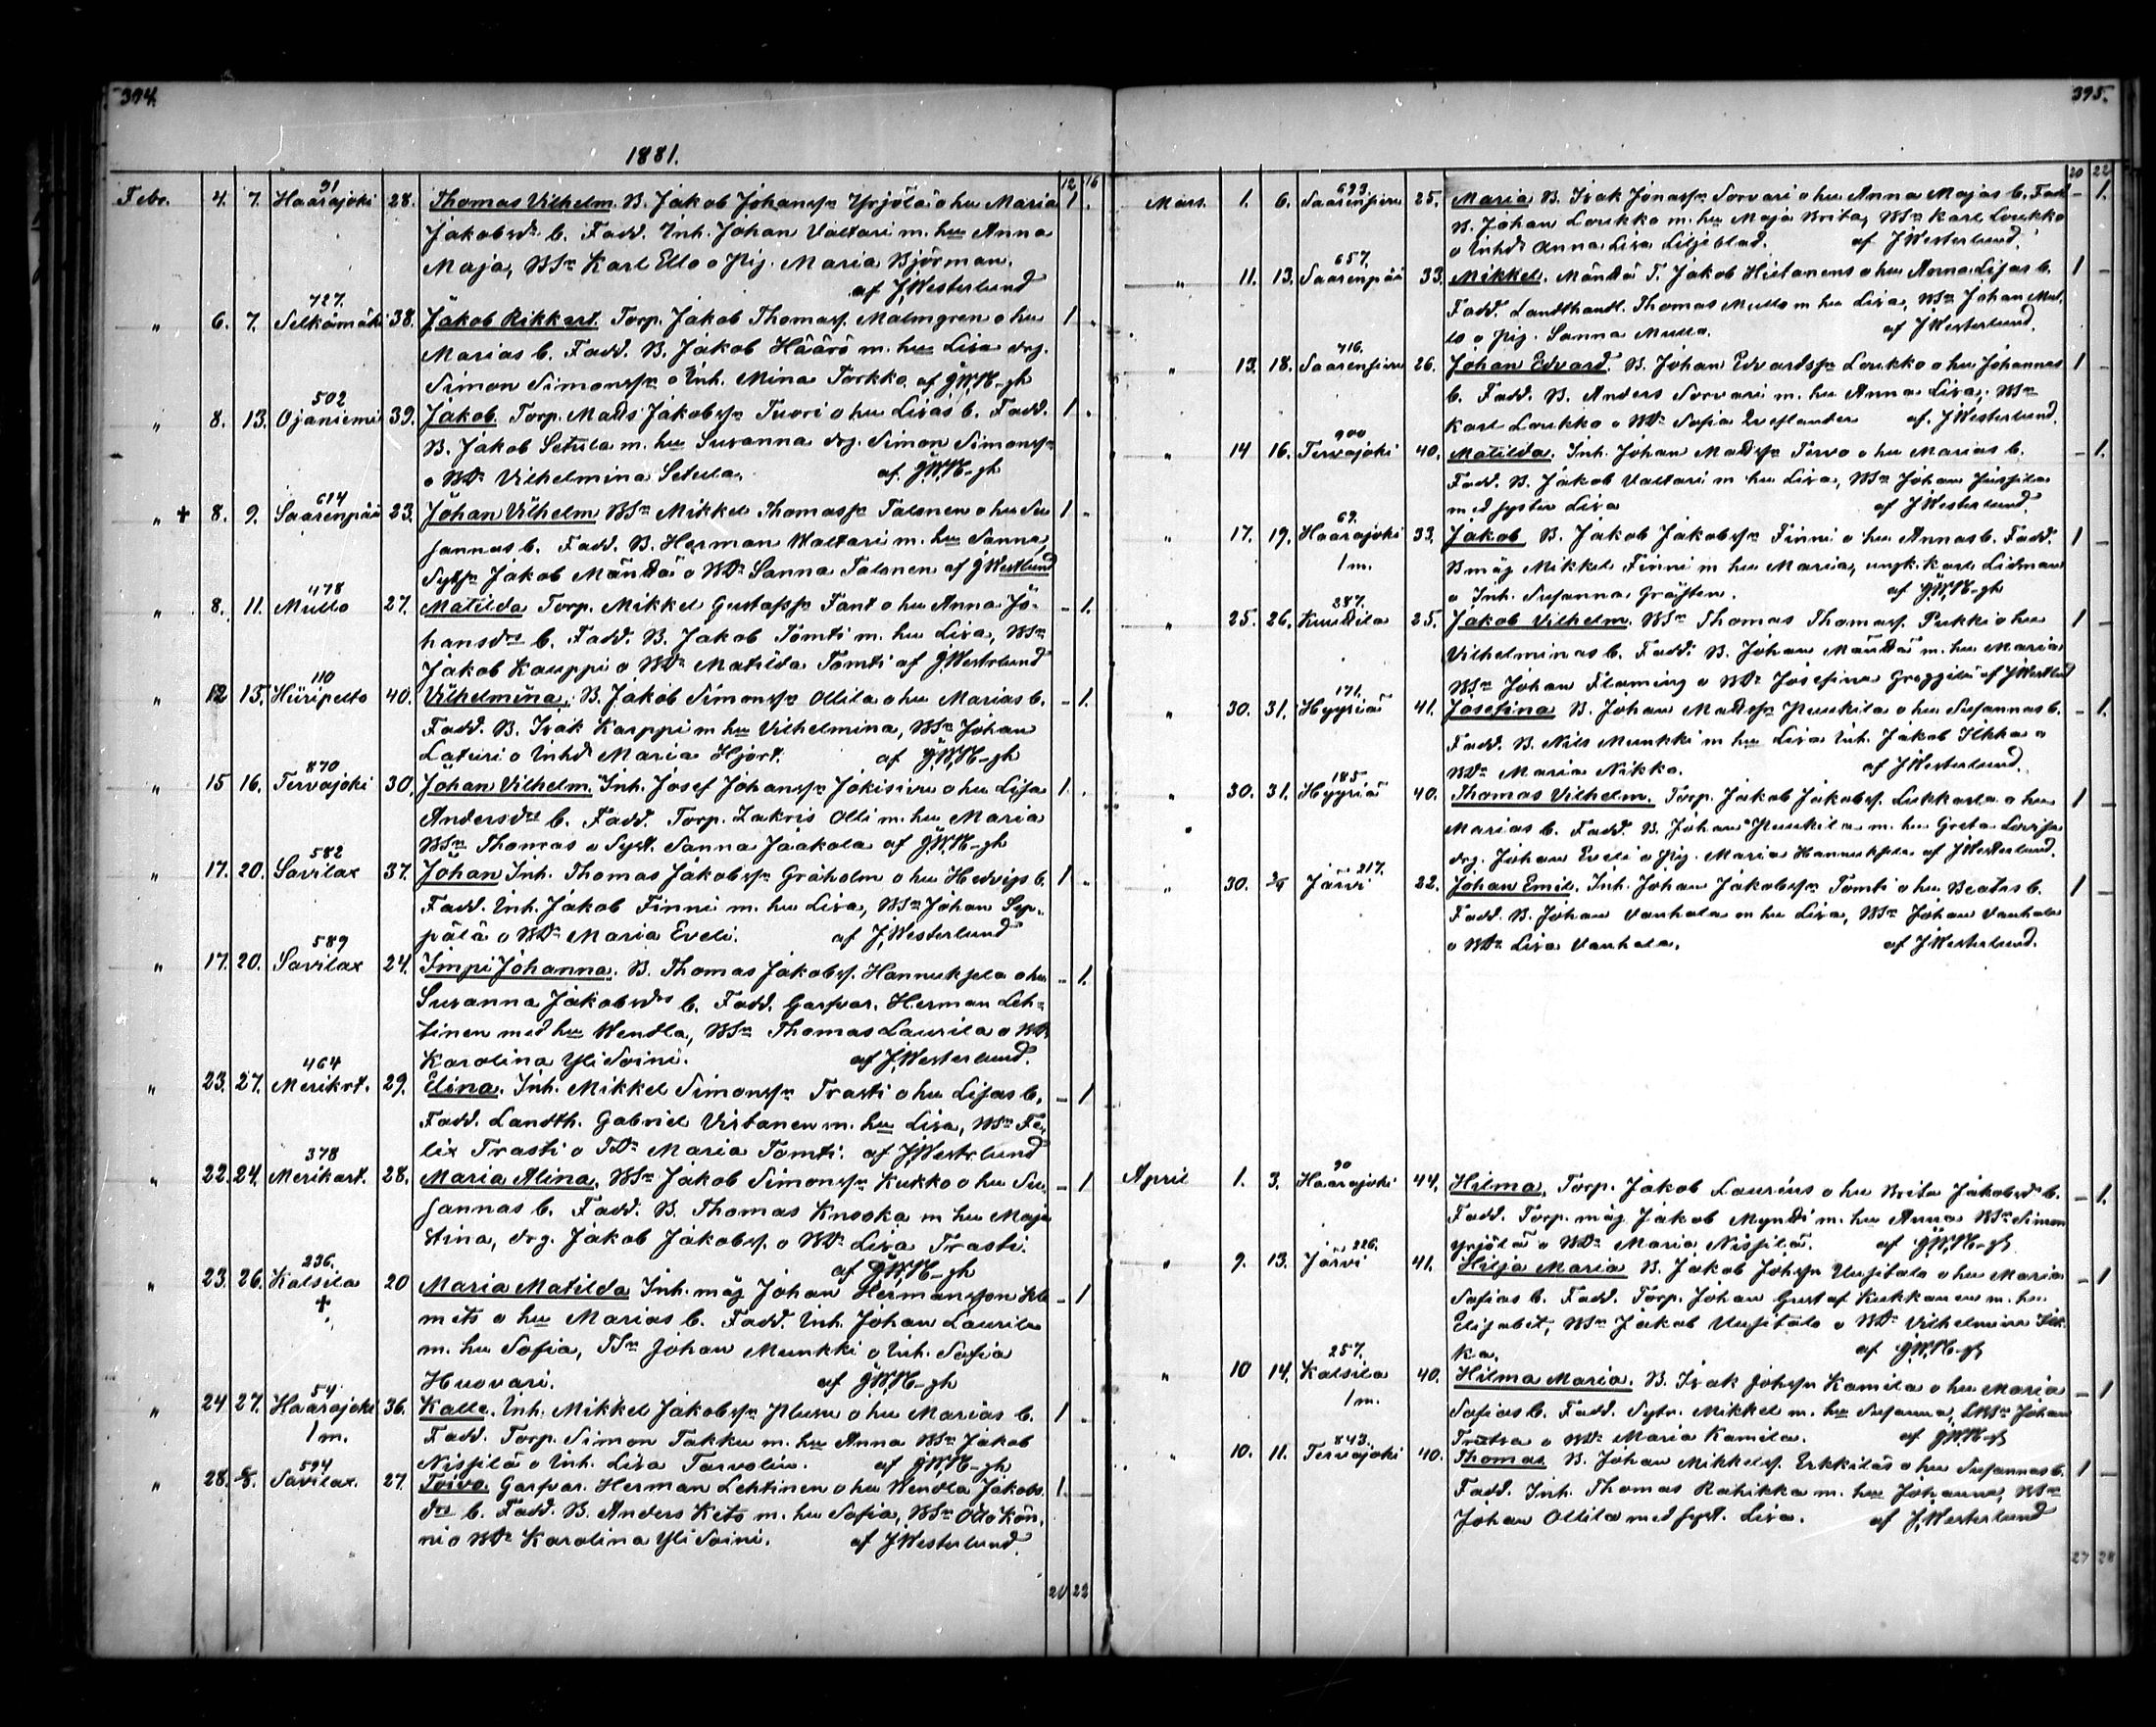 394.
1881.
12 16
91
Febr. 4. 7. Haarajoki 28. Thomas Vilhelm. B. Jakob Johanssn Yrjölä o hu Maria 1 .
Jakobsdr b. Fadd. Inh. Johan Valtari m. hu Anna
Maja, BSn Karl Ello o Pig. Maria Björman.
af J. Westerlund
727.
" 6. 7. Selkämäki 38. Jakob Rikkart. Torp. Jakob Thomass. Malmgren o hu 1 .
Marias b. Fadd. B. Jakob Häärö m. hu Lisa drg.
Simon Simonssn o Inh. Mina Torkko. af
502
" 8. 13. Ojaniemi 39. Jakob. Torp. Matts Jakobssn Tuori o hu Lisas b. Fadd. 1 .
B. Jakob Setula m. hu Susanna drg. Simon Simonssn
o BDr Vilhelmina Setula. af
614
" † 8. 9. Saarenpää 23. Johan Vilhelm BSn Mikkel Thomassn Talonen o hu Su 1 -
sannas b. Fadd. B. Herman Waltari m. hu Sanna,
Sytn Jakob Mänttä o BDr Sanna Talonen af J Westlund
478
" 8. 11. Mullo 27. Matilda Torp. Mikkel Gustafssn Fant o hu Anna Jo- - 1.
hansdrs b. Fadd. B. Jakob Tömti m. hu Lisa, BSn
Jakob Kauppi o BDr Matilda Tomti af J. Westrlund
110
" 12 13. Hiiripelto 40. Vilhelmina. B. Jakob Simonssn Ollila o hu Marias b. - 1.
Fadd. B. Isak Karppi m hu Vilhelmina, BSn Johan
Laturi o Inhd Maria Hjort. af
870
" 15 16. Tervajoki 30. Johan Vilhelm. Inh. Josef Johanssn Jokisivu o hu Lisa 1. .
Andersdrs b. Fadd. Torp. Zakris Olli m. hu Maria
BSn Thomas o Syst. Sanna Jaakola af
582
" 17. 20. Savilax 37. Johan Inh. Thomas Jakobssn Gråholm o hu Hedvigs b. 1 .
Fadd. Inh. Jakob Finni m. hu Lisa, BSn Johan Sep-
pälä o BDr Maria Eveli. af J. Westerlund
589
" 17. 20. Savilax 24. Impi Johanna. B. Thomas Jakobss. Hannuksela o hu - 1.
Susanna Jakobsdrs b. Fadd. Garfvar. Herman Leh-
tinen med hu Wendla, BSn Thomas Laurila o BDr
Karolina Yli Soini. af J. Westerlund.
464
" 23. 27. Merikrt. 29. Elina. Inh. Mikkel Simonssn Trasti o hu Lisas b. - 1
Fadd. Landth. Gabriel Virtanen m. hu Lisa, BSn Fe-
lix Trasti o TDr Maria Tomti. af J. Westrlund
378
" 22. 24. Merikart. 28. Maria Alina. BSn Jakob Simonssn Kukko o hu Su- - 1
sannas b. Fadd. B. Thomas Knooka m hu Maja
Stina, drg. Jakob Jakobss. o BDr Lisa Trasti.
af
236.
" 23. 26. Kalsila 20 Maria Matilda Inh. måg Johan Hermansson Kle - 1
† mets o hu Marias b. Fadd. Inh. Johan Laurila
m. hu Sofia, BSn Johan Munkki o Inh. Sofia
Huovari. af
54
" 24 27. Haarajoki 36. Kalle. Inh. Mikkel Jakobssn Plusu o hu Marias b. 1 .
1 m. Fadd. Torp. Simon Takku m. hu Anna BSn Jakob
Nissilä o Inh. Lisa Tarvolin. af
594
" 28. 6/3. Savilax. 27. Toivo. Garfvar. Herman Lehtinen o hu Wendla Jakobs- 1. -
drs b. Fadd. B. Anders Keto m. hu Sofia, BSn Otto Kön-
ni o BDr Karolina Yli Soini. af J. Westerlund.
20 22
395.
20 22
693.
Mars. 1. 6. Saarenpää 25. Maria B. Isak Jonassn Sorvari o hu Anna Majas b. Fadd - 1.
B. Johan Loukko m. hu Maja Brita, BSn Karl Loukko
o Inhdr Anna Lisa Liljeblad. af J Westerlund.
657.
" 11. 13. Saarenpää 33. Mikkel. Mänttä T. Jakob Hietanens o hu Anna Lisas b. 1 -
Fadd. Landthandl. Thomas Mullo m hu Lisa, BSn Johan Mul-
lo o Pig. Sanna Mullo. af J Westerlund.
716.
" 13. 18. Saarenpää 26. Johan Edvard. B. Johan Edvardssn Loukko o hu Johannas 1 -
b. Fadd. B. Anders Sorvari m. hu Anna Lisa, BSn
Karl Loukko o BDr Sofia Qveflander af. J Westerlund.
900
" 14 16. Tervajoki 40. Matilda. Inh. Johan Mattssn Tervo o hu Marias b. - 1.
Fadd. B. Jakob Valtari m hu Lisa, BSn Johan Jussila
med syster Lisa af J Westerlund.
69.
" 17. 19. Haarajoki 33. Jakob B. Jakob Jakobssn Finni o hu Annas b. Fadd. 1 -
1 m. Bmåg Mikkel Finni m hu Maria, ungk. Karl Lidman
o Inh. Susanna Gräften. af
387.
" 25. 26. Kuuttila 25. Jakob Vilhelm. BSn Thomas Thomass. Pukki o hu 1 -
Vilhelminas b. Fadd. B. Johan Mänttä m. hu Maria
BSn Johan Flaming o BDr Josefina Greggilä af J Westlund
171.
" 30. 31. Hyyriä 41. Josefina B. Johan Mattssn Punkila o hu Susannas b. - 1.
Fadd. B. Nils Munkki m hu Lisa Inh. Jakob Ilkka o
BDr Maria Nikko. af J Westerlund.
185.
" 30. 31. Hyyriä 40. Thomas Vilhelm. Torp. Jakob Jakobss. Lukkarla o hu 1 -
Marias b. Fadd. B. Johan Punkila m. hu Greta Lovisa
drg. Johan Eveli o Pig. Maria Hannuksela af J Westerlund.
217.
" 30. 2/4 Järvi 22. Johan Emil. Inh. Johan Jakobssn Tomti o hu Beatas b. 1 -
Fadd. B. Johan Vanhala m hu Lisa, BSn Johan Vanhala
o BDr Lisa Vanhala. af J Westerlund.
90
April 1. 3. Haarajoki 44. Hilma. Torp. Jakob Laurius o hu Brita Jakobsdrs b. - 1.
Fadd. Torp. måg Jakob Myntti m. hu Anna BSn Simon
Yrjölä o BDr Maria Nissilä. af
226.
" 9. 13. Järvi 41. Hilja Maria B. Jakob Johssn Uusitalo o hu Maria - 1
Sofias b. Fadd. Torp. Johan Gustaf Kukkanen m. hu
Elisabet, BSn Jakob Uusitalo o BDr Vilhelmina Ilk-
ka. af
257.
" 10 14. Kalsila 40. Hilma Maria. B. Isak Johssn Kamila o hu Maria - 1
1 m. Sofias b. Fadd. Sytn. Mikkel m. hu Susanna, BSn Johan
o BDr Maria Kamila. af
843.
" 10. 11. Tervajoki 40. Thomas B. Johan Mikkelss. Erkkiläs o hu Susannas b. 1 -
Fadd. Inh. Thomas Rahikka m. hu Johanna, BSn
Johan Ollila med syst. Lisa. af J. Westerlund
27 28